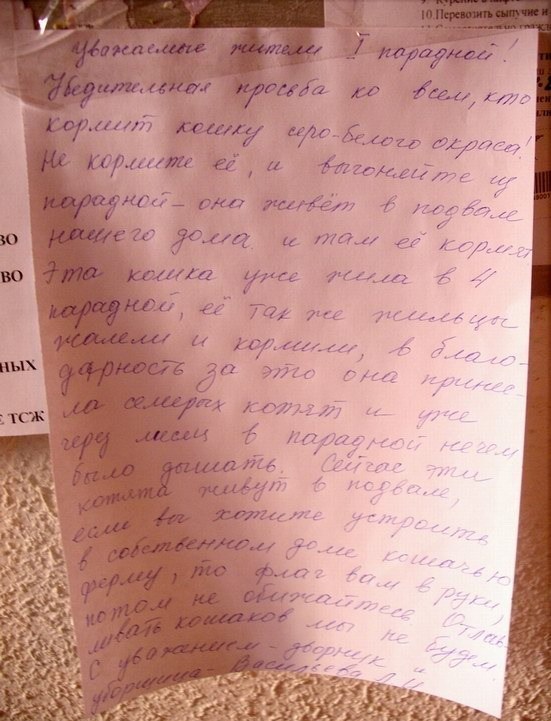 10 Перевозить сыпучие и
Уважаемые жители I парадной!
Убедительная просьба ко всем, кто
кормит кошку серо-белого окраса!
Не кормите её, и выгоняйте из
парадной – она живёт в подвале
нашего дома и там её кормят
Эта кошка уже жила в 4
парадной, её так же жильцы
жалели и кормили, в благо-
дарность за это она принес-
ла семерых котят и уже
через месец в парадной нечем
было дышать. Сейчас эти
котята живут в подвале,
если вы хотите устроить
в собственном доме кошачью
ферму, то флаг вам в руки,
потом не обижайтесь. Отлав-
ливать кошаков мы не будем.
С уважением – дворник и
уборщица – Васильева
ВО
ВО
НЫХ
ТСЖ